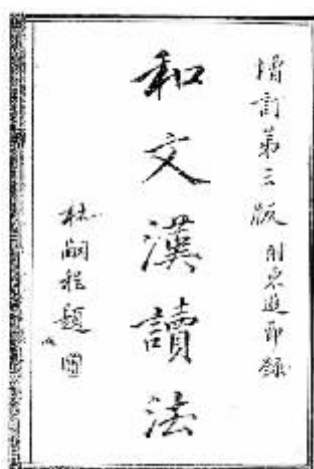 增訂第三版 附東遊節錄
和文漢讀法
杜嗣程題